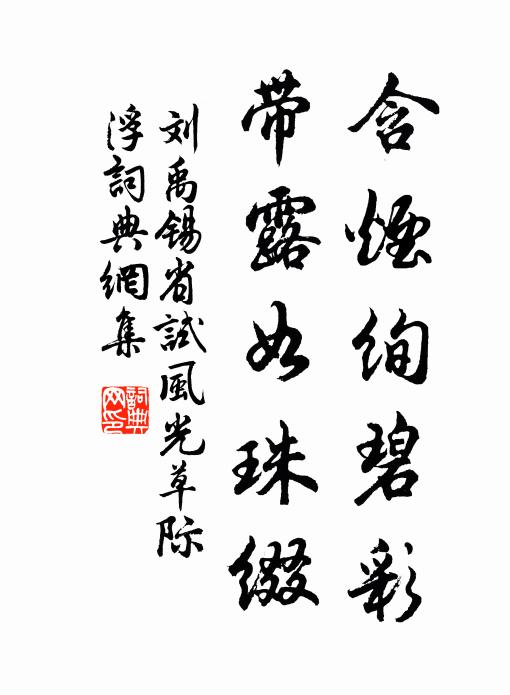 含煙絢碧彩
带露如珠綴
刘禹锡省試風光草际
浮詞典網集
詞典网印